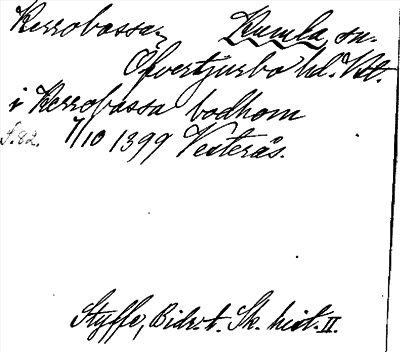 Kerrobassa, Kumla sn.
Öfvertjurbo hd. Vstl.
i Kerrobassa bodhom
S. 82. 7/10 1399 Vesterås.
Styffe, Bidr. t. Sk. hist. II.